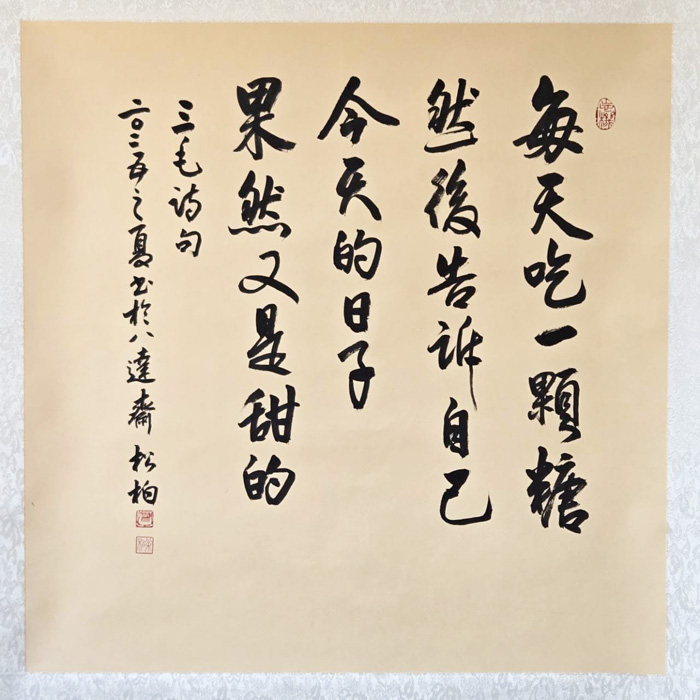 每天吃一顆糖
然後告訴自己
今天的日子
果然又是甜的
三毛詩句
二〇二五之夏书於八達齋 松柏